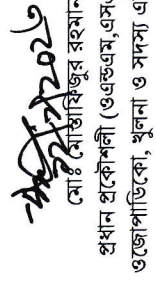 মোঃ মোস্তাফিজুর রহমান
প্রধান প্রকৌশলী (ওএন্ডএম,এস
ওজোপাডিকো, খুলনা ও সদস্য এ